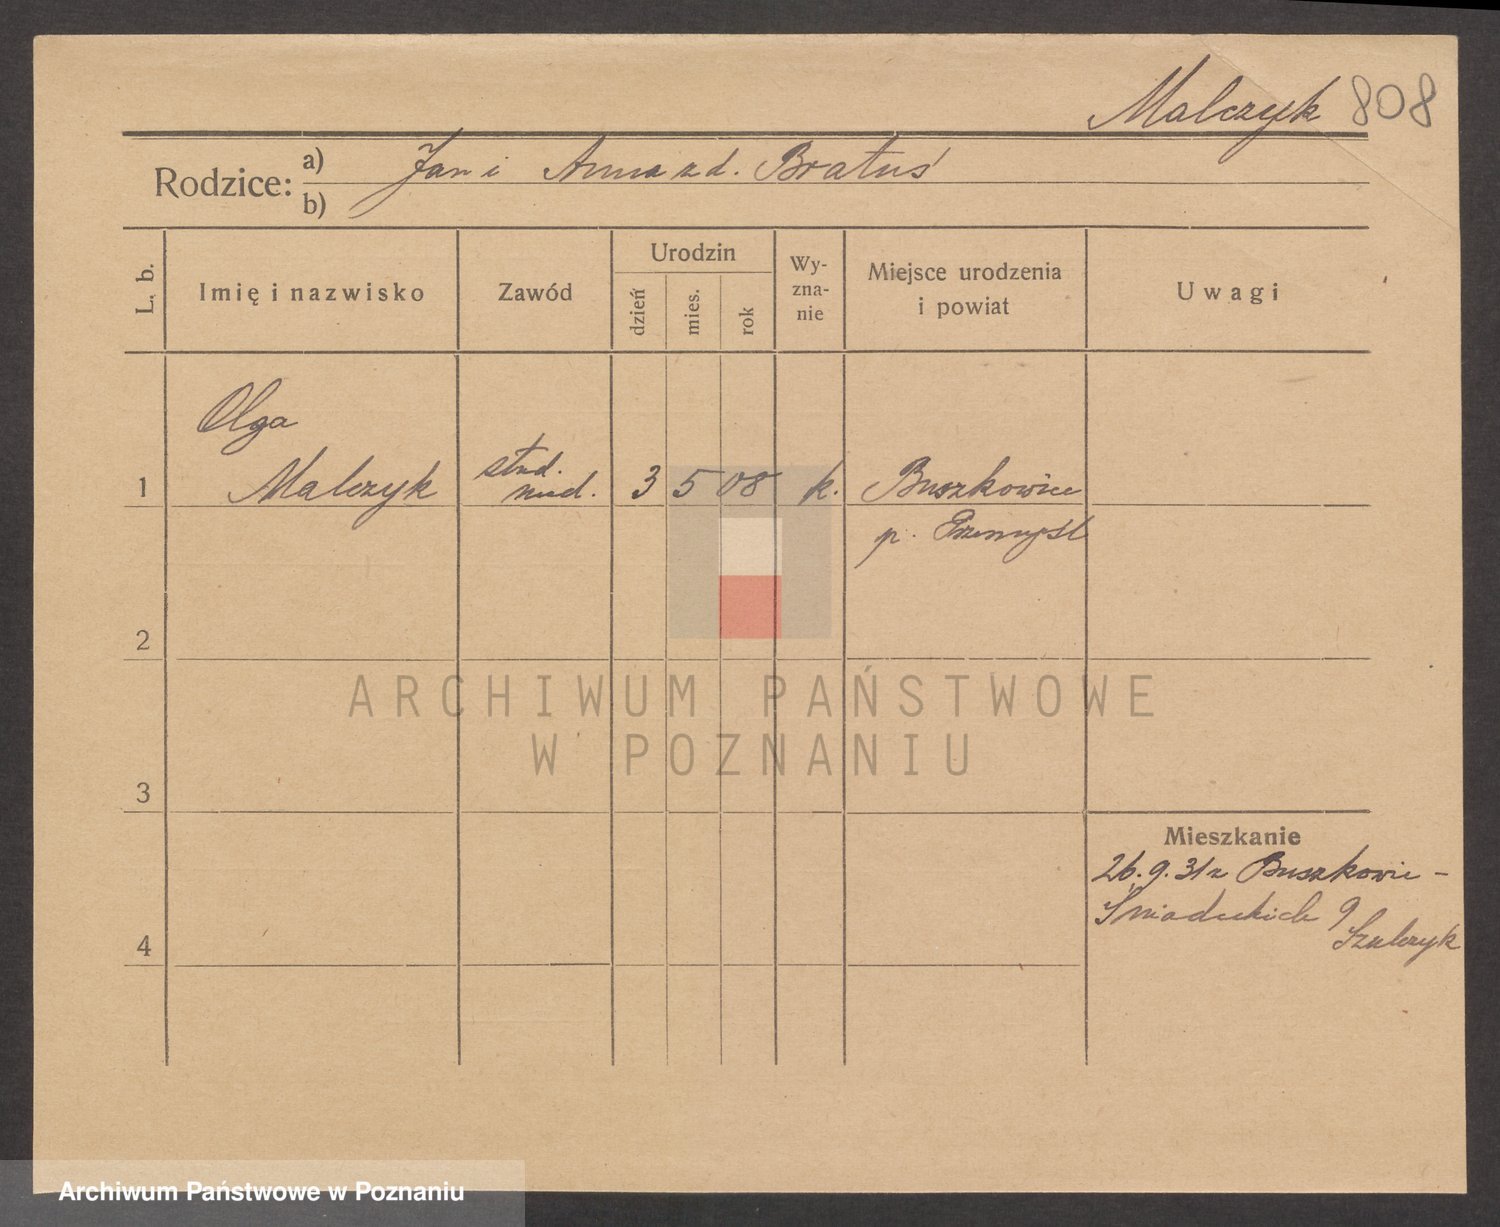 Malczyk 808
Rodzice: a) Jan i Anna z d. Bratuś
b)
L. b.
Imię i nazwisko
Zawód
Urodzin
dzień
mies.
rok
Wy-
zna-
nie
Miejsce urodzenia
i powiat
Uwagi
Olga
1 Malczyk stud. med. 3 5 08 k. Buszkowice
p. Przemyśl
2
ARCHIWUM PAŃSTWOWE
W POZNANIU
3
Mieszkanie
26.9.31 z Buszkowic -
Śniadeckich 9
Szulczyk
4
Archiwum Państwowe w Poznaniu